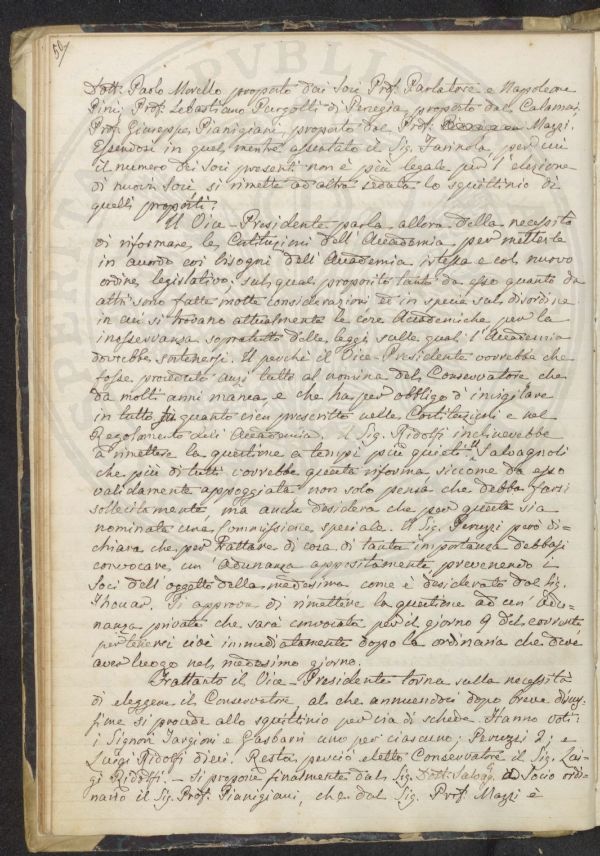 50/
Dott. Paolo Morello proposto dai Soci Prof. Parlatore e Napoleone
Pini; Prof. Sebastiano Purgotti di Perugia, proposto dal Calamai,
Prof. Giuseppe Pianigiani, proposto dal Prof. Mazzi.
Essendosi in quel mentre assentato il Sig. Farinola, per cui
il numero dei Soci presenti non è più legale per l'elezione
di nuovi Soci si rimette ad altra seduta lo squittinio di
quelli proposti.
Il Vice-Presidente parla allora della necessità
di riformare le Costituzioni dell'Accademia per metterle
in accordo coi bisogni dell'Accademia istessa e col nuovo
ordine legislativo; sul qual proposito tanto da esso quanto da
altri sono fatte molte considerazioni in specie sul disordine
in cui si trovano attualmente le cose Accademiche per la
inosservanza sopratutto delle leggi sulle quali l'Accademia
dovrebbe sostenersi. Il perchè il Vice-Presidente vorrebbe che
fosse proceduto anzi tutto al nomina del Conservatore che
da molti anni manca e che ha per obbligo d'invigilare
in tutto quanto vien prescritto nelle Costituzioni e nel
Regolamento dell'Accademia. Il Sig. Ridolfi inclinerebbe
a rimettere la questione a tempi più quieti. Il Salvagnoli
che più di tutti vorrebbe questa riforma siccome da esso
validamente appoggiata non solo pensa che debba farsi
sollecitamente, ma anche desidera che per questa sia
nominata una Commissione speciale. Il Sig. Peruzzi però di-
chiara che per trattare di cosa di tanta importanza debbasi
convocare un'adunanza appositamente prevenendo i
Soci dell'oggetto della medesima come è desiderato dal Sig.
Thouar. Si approva di rimettere la questione ad un'adu-
nanza privata che sarà convocata per il giorno 9 del corrente
per tenersi cioè immediatamente dopo la ordinaria che deve
aver luogo nel medesimo giorno.
Frattanto il Vice-Presidente torna sulla necessità
di eleggere il Conservatore, al che annuendosi dopo breve discus-
sione si procede allo squittinio per via di schede. Hanno voti:
i Signori Targioni e Gasbarri uno per ciascuno; Peruzzi 2; e
Luigi Ridolfi dieci. Resta perciò eletto Conservatore il Sig. Lui-
gi Ridolfi. — Si propone finalmente dal Sig. Dott. Salvag. a Socio ordi-
nario il Sig. Prof. Pianigiani, che dal Sig. Prof. Mazzi è